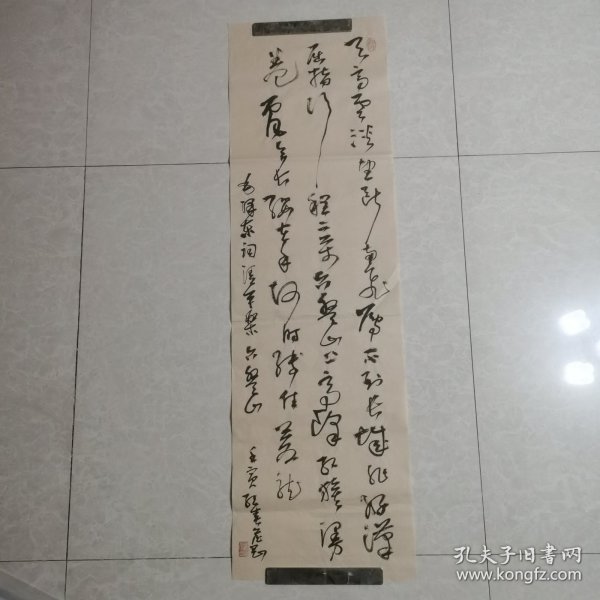 天高云淡望断南飞雁不到长城非好汉
屈指行程二万六盘山上高峰红旗漫
卷西风今长缨在手何时缚住苍龙
毛泽东词清平乐六盘山 壬寅
孔夫子旧书网
www.kongfz.com